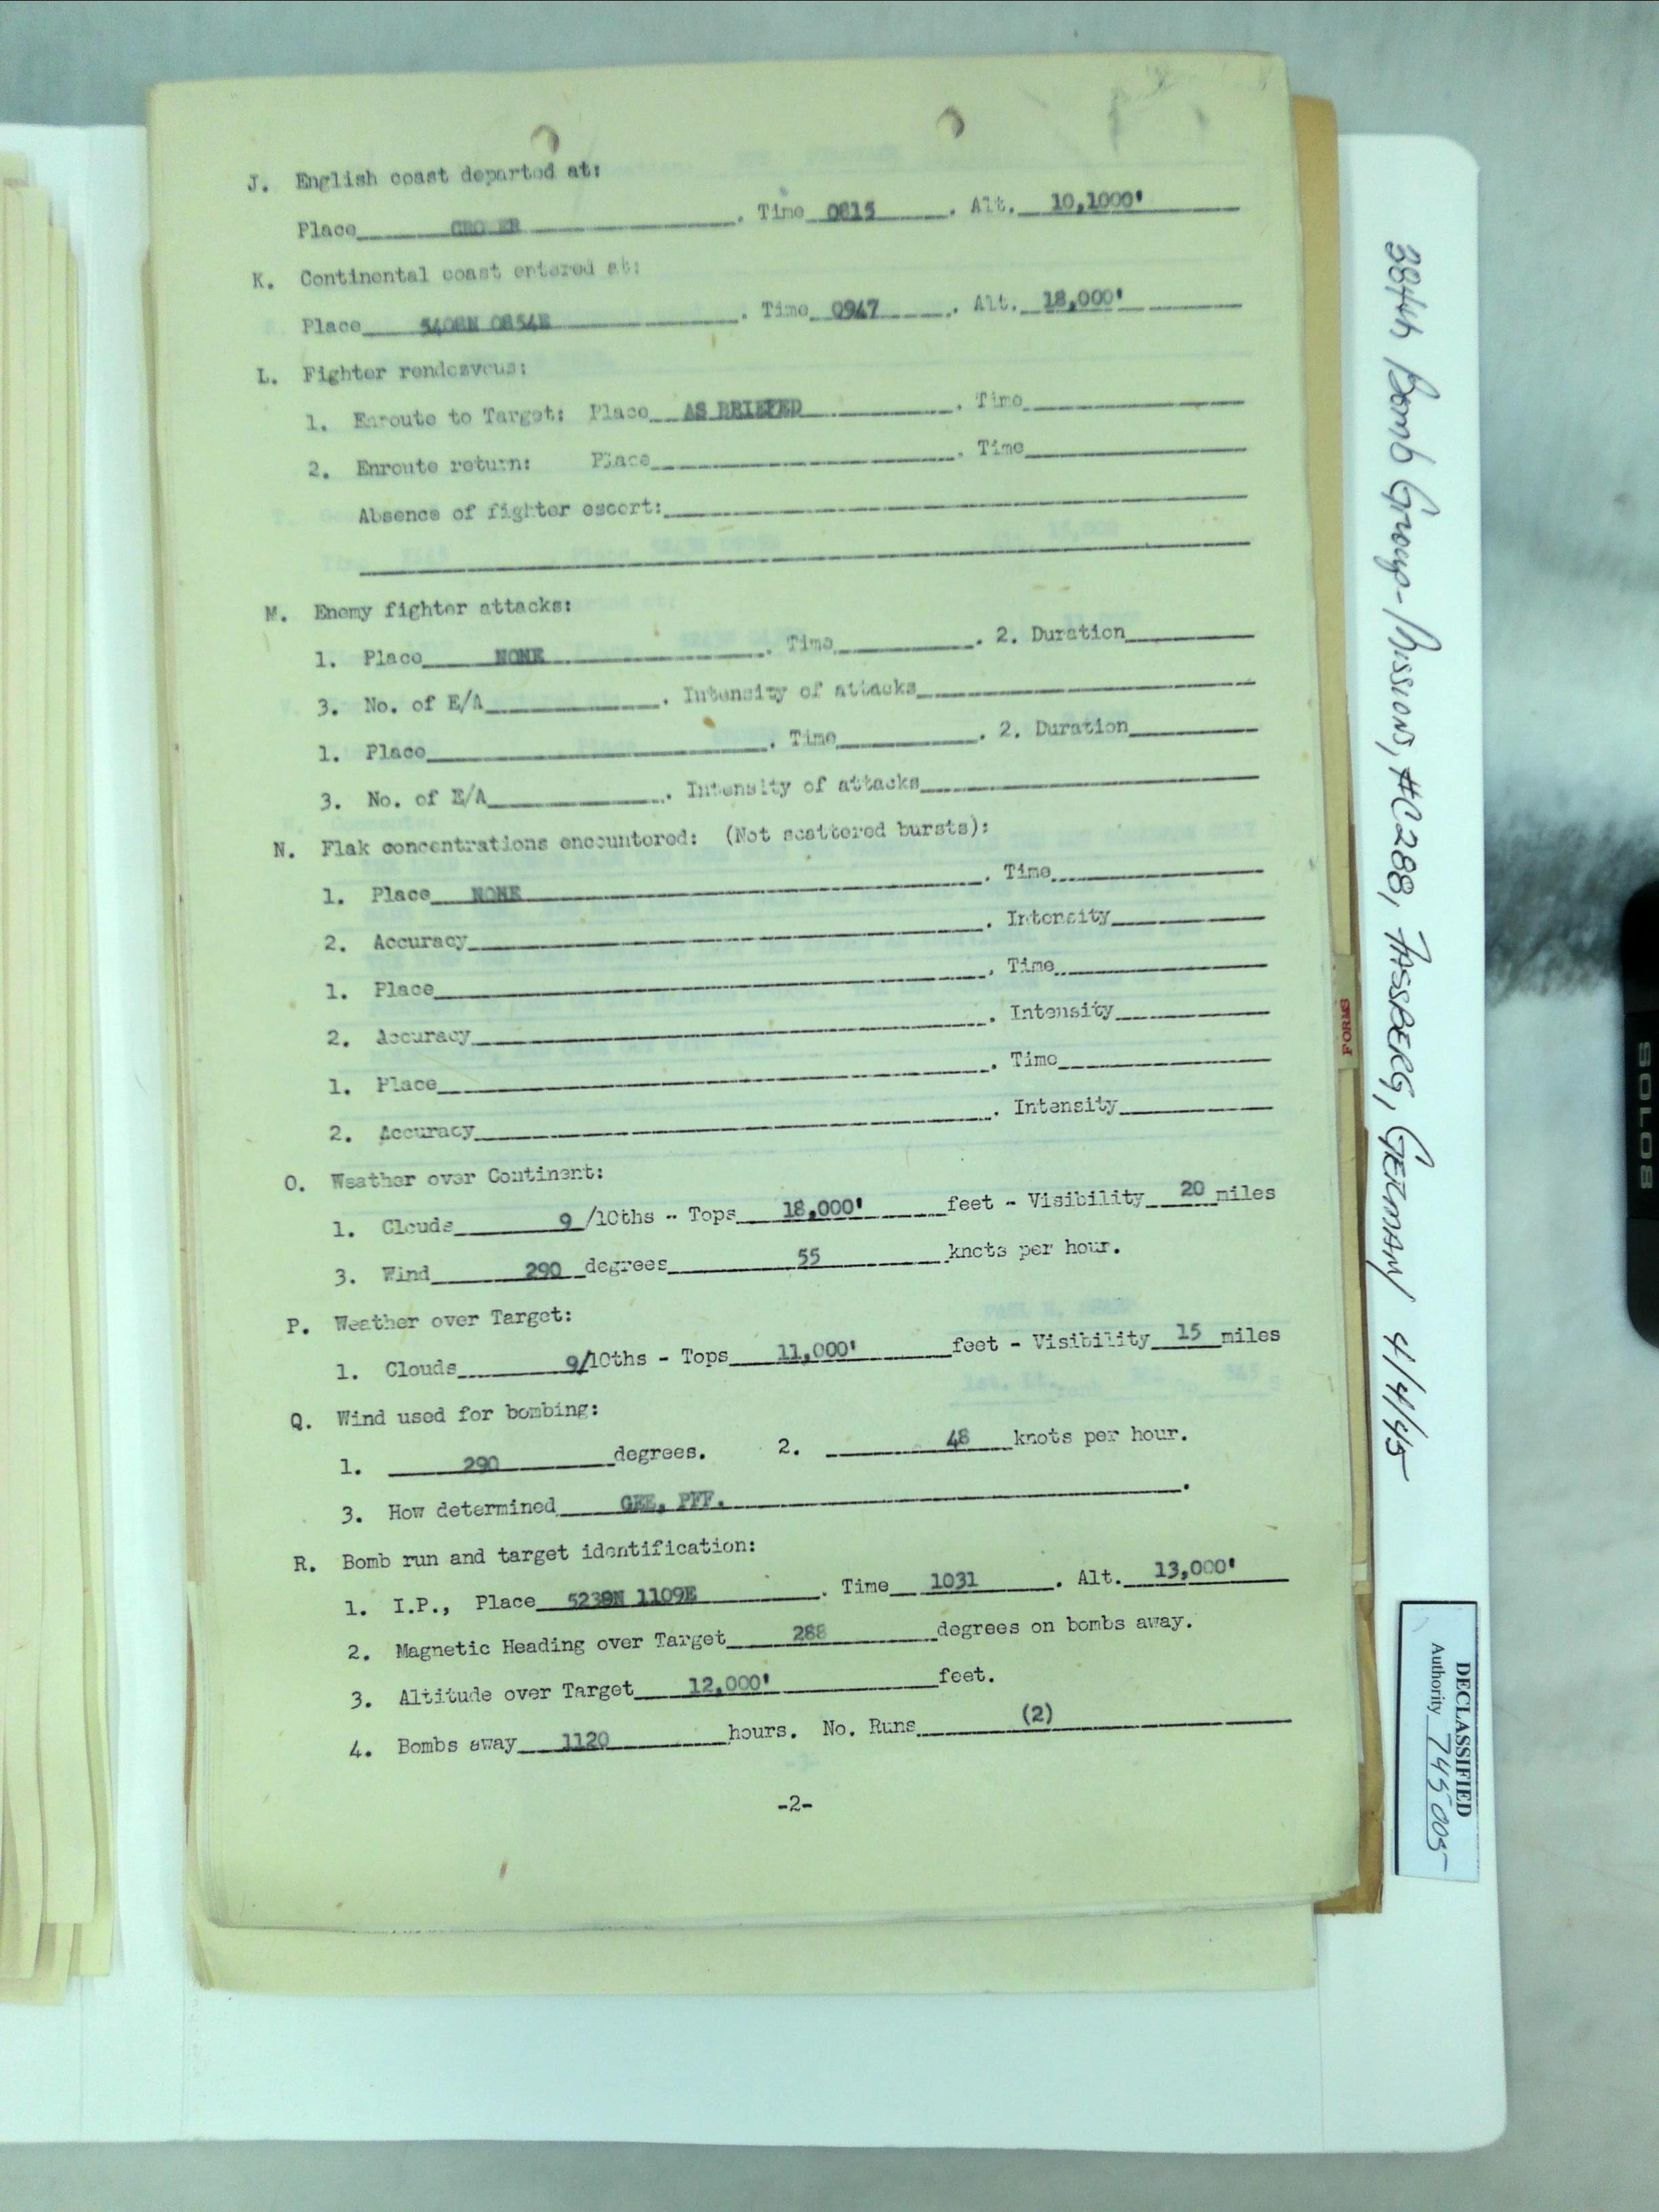 J. English coast departed at:
Place CROMER. Time 0815. Alt. 10,1000'
K. Continental coast entered at:
Place 5408N 0854E. Time 0947. Alt. 18,000'
L. Fighter rendezvous:
1. Enroute to Target: Place AS BRIEFED. Time
2. Enroute return: Place. Time
Absence of fighter escort:
M. Enemy fighter attacks:
1. Place NONE. Time. 2. Duration
3. No. of E/A. Intensity of attacks
1. Place. Time. 2. Duration
3. No. of E/A. Intensity of attacks
N. Flak concentrations encountered: (Not scattered bursts):
1. Place NONE. Time
2. Accuracy. Intensity
1. Place. Time
2. Accuracy. Intensity
1. Place. Time
2. Accuracy. Intensity
O. Weather over Continent:
1. Clouds 9/10ths - Tops 18,000' feet - Visibility 20 miles
3. Wind 290 degrees 55 knots per hour.
P. Weather over Target:
1. Clouds 9/10ths - Tops 11,000' feet - Visibility 15 miles
Q. Wind used for bombing:
1. 290 degrees. 2. 48 knots per hour.
3. How determined GEE, PFF.
R. Bomb run and target identification:
1. I.P., Place 5238N 1109E. Time 1031. Alt. 13,000'
2. Magnetic Heading over Target 288 degrees on bombs away.
3. Altitude over Target 12,000' feet.
4. Bombs away 1120 hours. No. Runs (2)
-2-
384th Bomb Group-Mission, #C288, FASSBERG, GERMANY 4/4/45
FORMS
DECLASSIFIED
Authority 745005
SOLO8